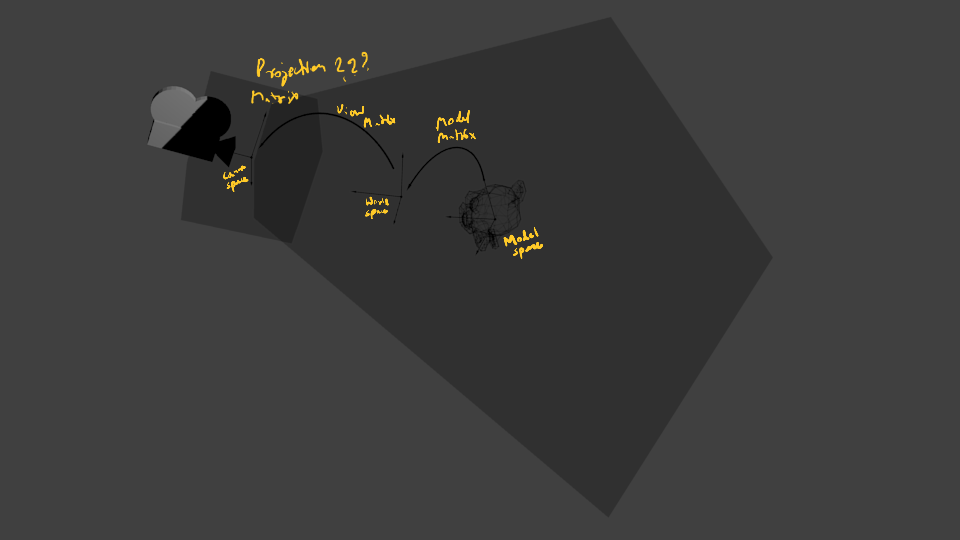 Projection ???
Matrix
View
Matrix
Model
Matrix
Camera
space
World
space
Model
space